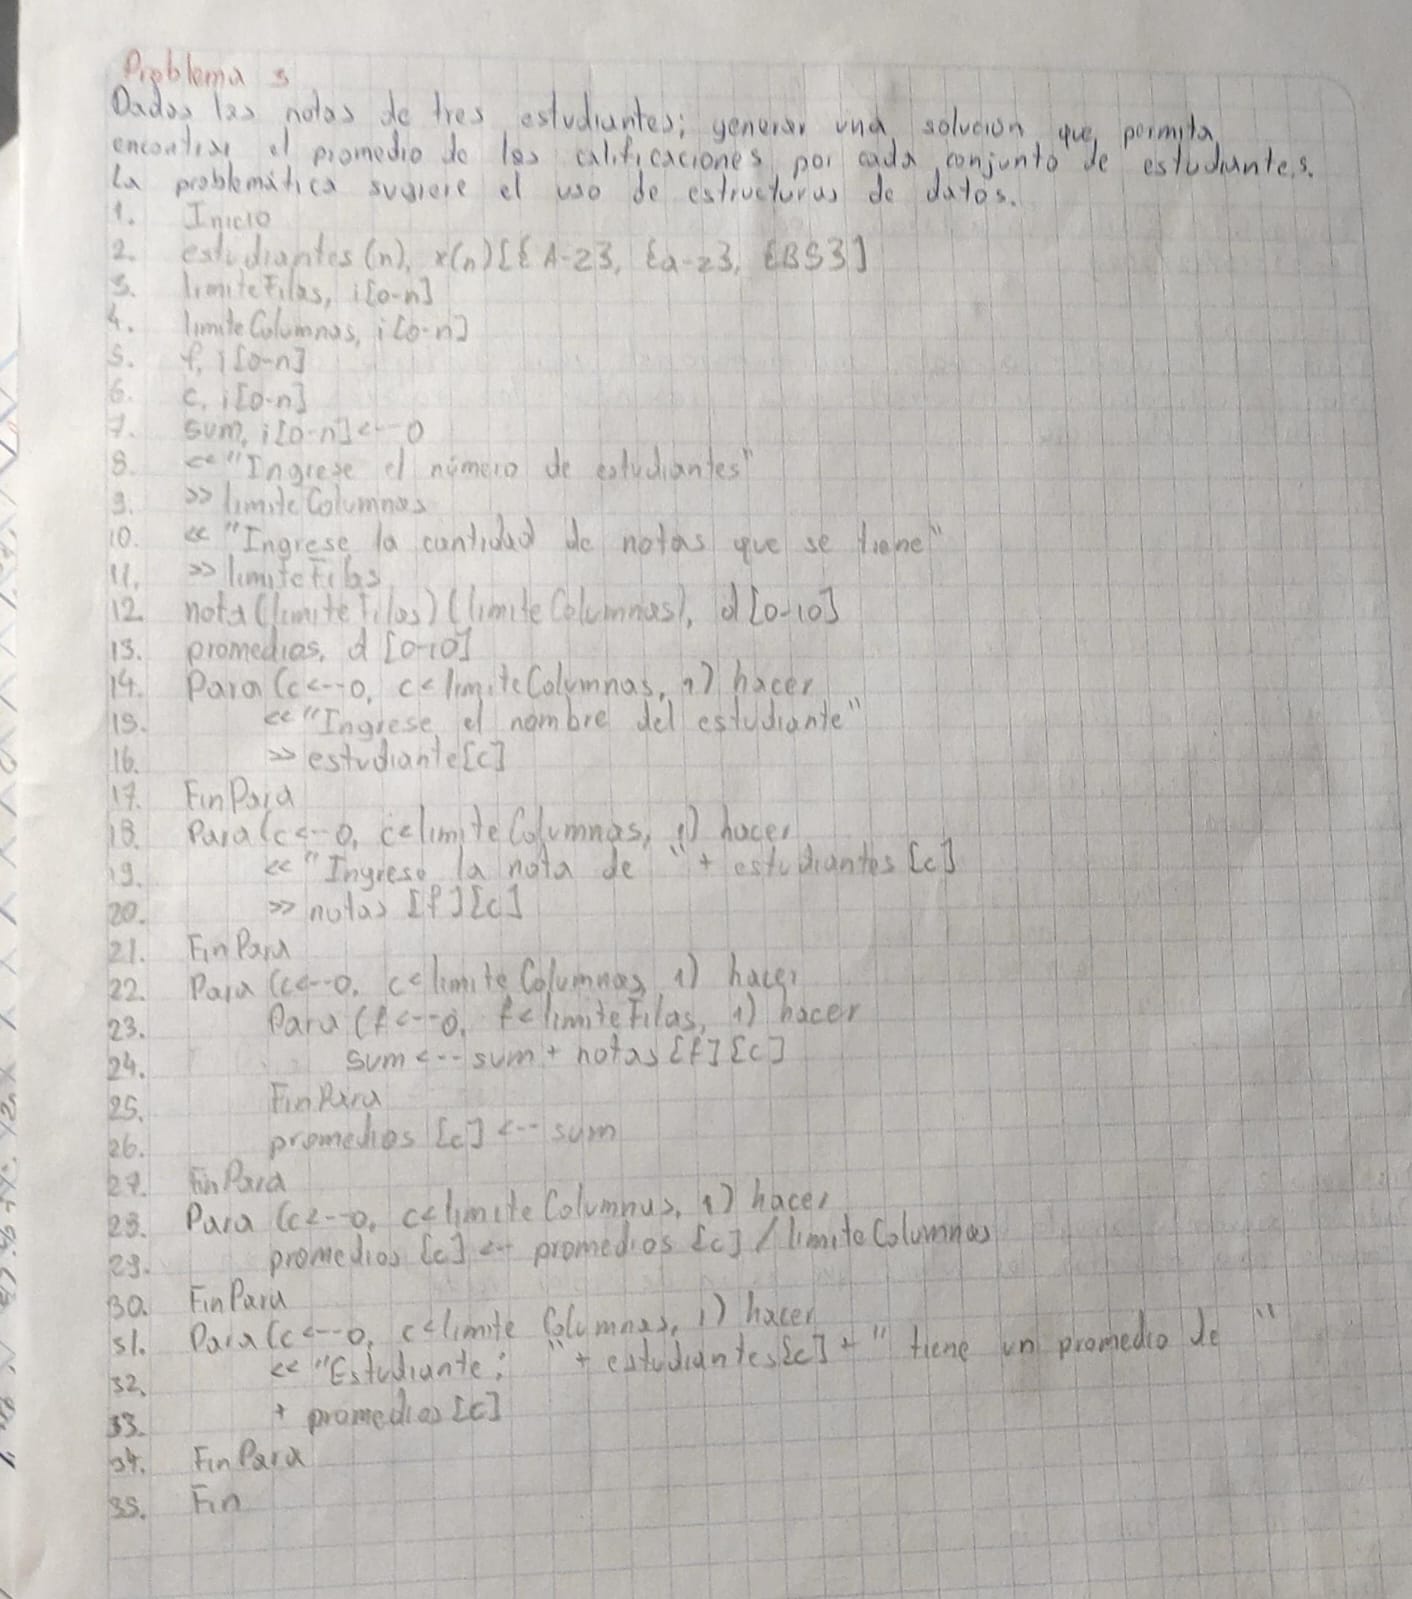 Problema 3
Dadas las notas de tres estudiantes; generar una solución que permita
encontrar el promedio de las calificaciones por cada conjunto de estudiantes.
La problemática sugiere el uso de estructuras de datos.
1. Inicio
2. estudiantes (n), x(n) [{A-Z}, {a-z}, {BS}]
3. limiteFilas, i[0-n]
4. limiteColumnas, i[0-n]
5. f, i[0-n]
6. c, i[0-n]
7. sum, i[0-n] <-- 0
8. << "Ingrese el número de estudiantes"
9. >> limiteColumnas
10. << "Ingrese la cantidad de notas que se tiene"
11. >> limiteFilas
12. nota (limiteFilas) (limiteColumnas), d [0-10]
13. promedios, d [0-10]
14. Para (c <-- 0, c < limiteColumnas, 1) hacer
15. << "Ingrese el nombre del estudiante"
16. >> estudiante[c]
17. FinPara
18. Para (c <-- 0, c < limiteColumnas, 1) hacer
19. << "Ingrese la nota de " + estudiantes [c]
20. >> notas [f][c]
21. FinPara
22. Para (c <-- 0, c < limiteColumnas, 1) hacer
23. Para (f <-- 0, f < limiteFilas, 1) hacer
24. sum <-- sum + notas [f][c]
25. FinPara
26. promedios [c] <-- sum
27. FinPara
28. Para (c <-- 0, c < limiteColumnas, 1) hacer
29. promedios [c] <-- promedios [c] / limiteColumnas
30. FinPara
31. Para (c <-- 0, c < limite Columnas, 1) hacer
32. << "Estudiante: " + estudiantes[c] + " tiene un promedio de "
33. + promedios [c]
34. FinPara
35. Fin